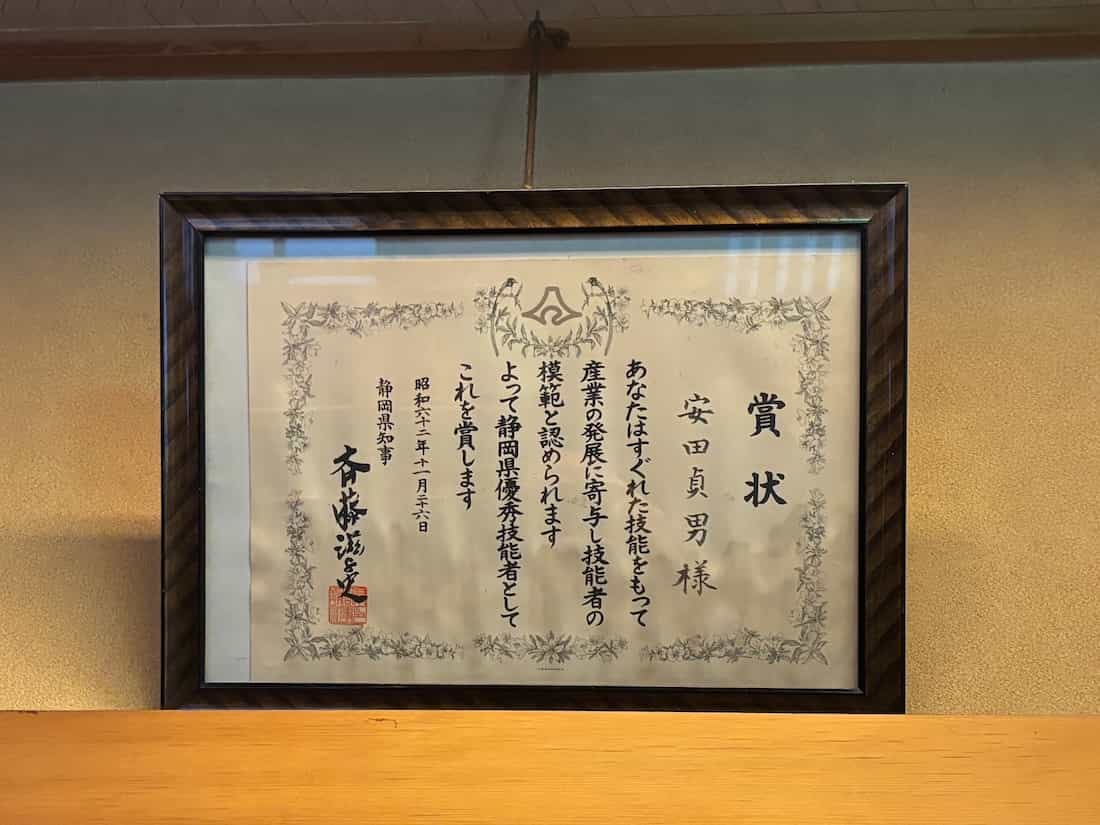 賞状
安田貞男様
あなたはすぐれた技能をもって
産業の発展に寄与し技能者の
模範と認められます
よって静岡県優秀技能者として
これを賞します
昭和六十二年十一月二十六日
静岡県知事
斉藤滋与史